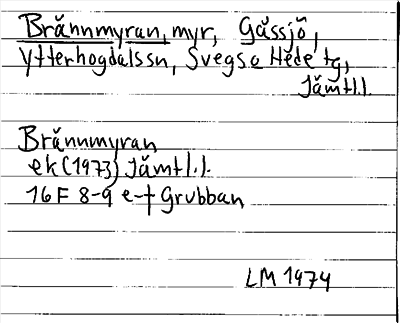 Brännmyran, myr, Gåssjö,
Ytterhogdalssn, Svegs o Hede tg,
Jämtl.l.
Brännmyran
ek (1973) Jämtl.l.
16 F 8-9 e-f Grubban
LM 1974